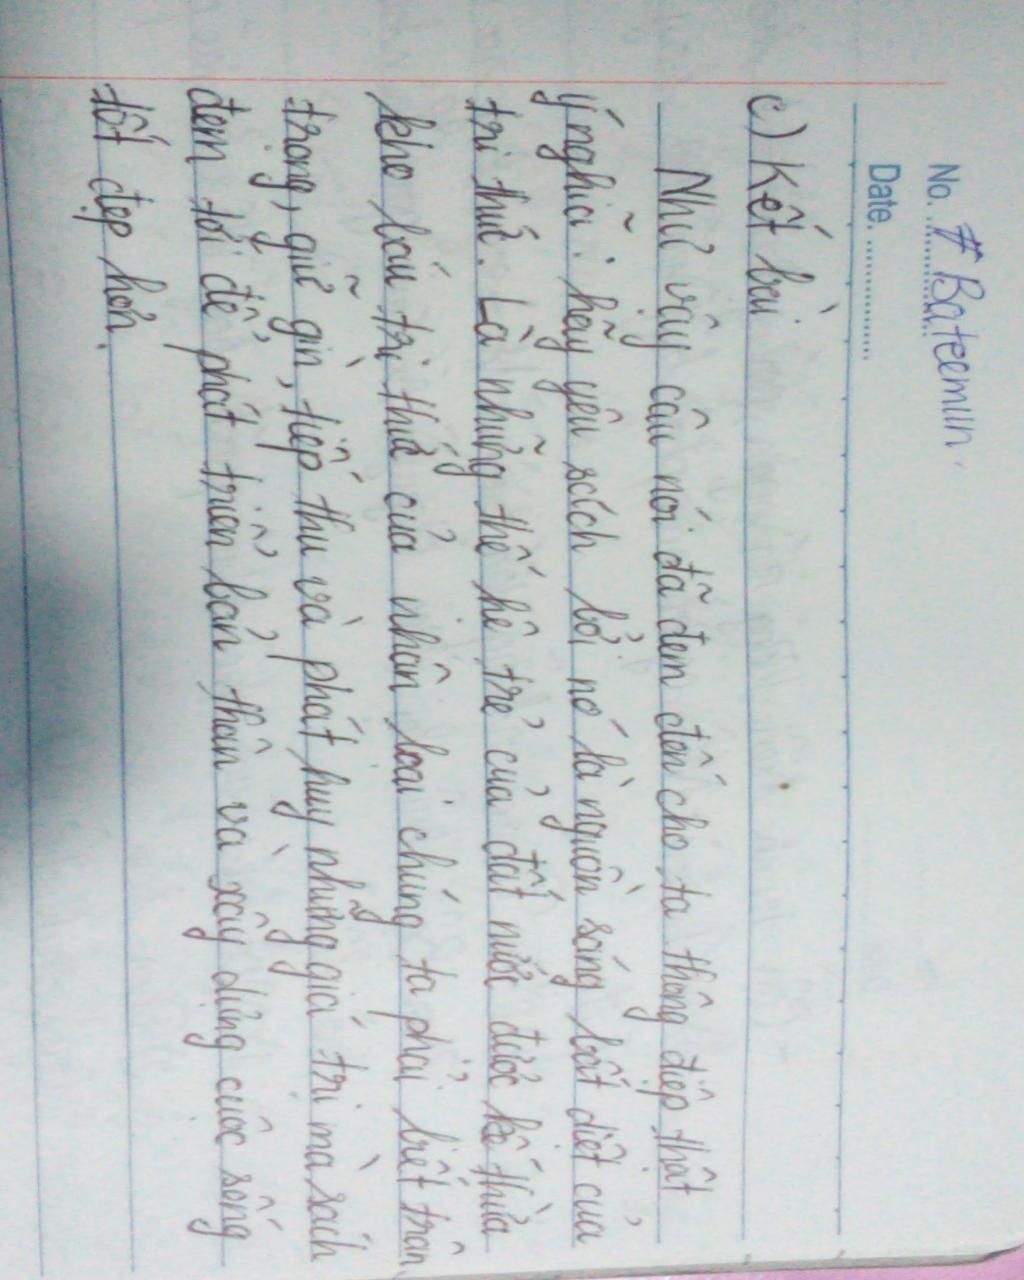 No. # Bateemun.
Date.
c) Kết bài
Như vậy câu nói đã đem đến cho ta thông điệp thật
ý nghĩa: hãy yêu sách bởi nó là nguồn sáng bất diệt của
tri thức. Là những thế hệ trẻ của đất nước được kế thừa
kho báu tri thức của nhân loại chúng ta phải biết trân
trọng, giữ gìn, tiếp thu và phát huy những giá trị mà sách
đem tới để phát triển bản thân và xây dựng cuộc sống
tốt đẹp hơn.